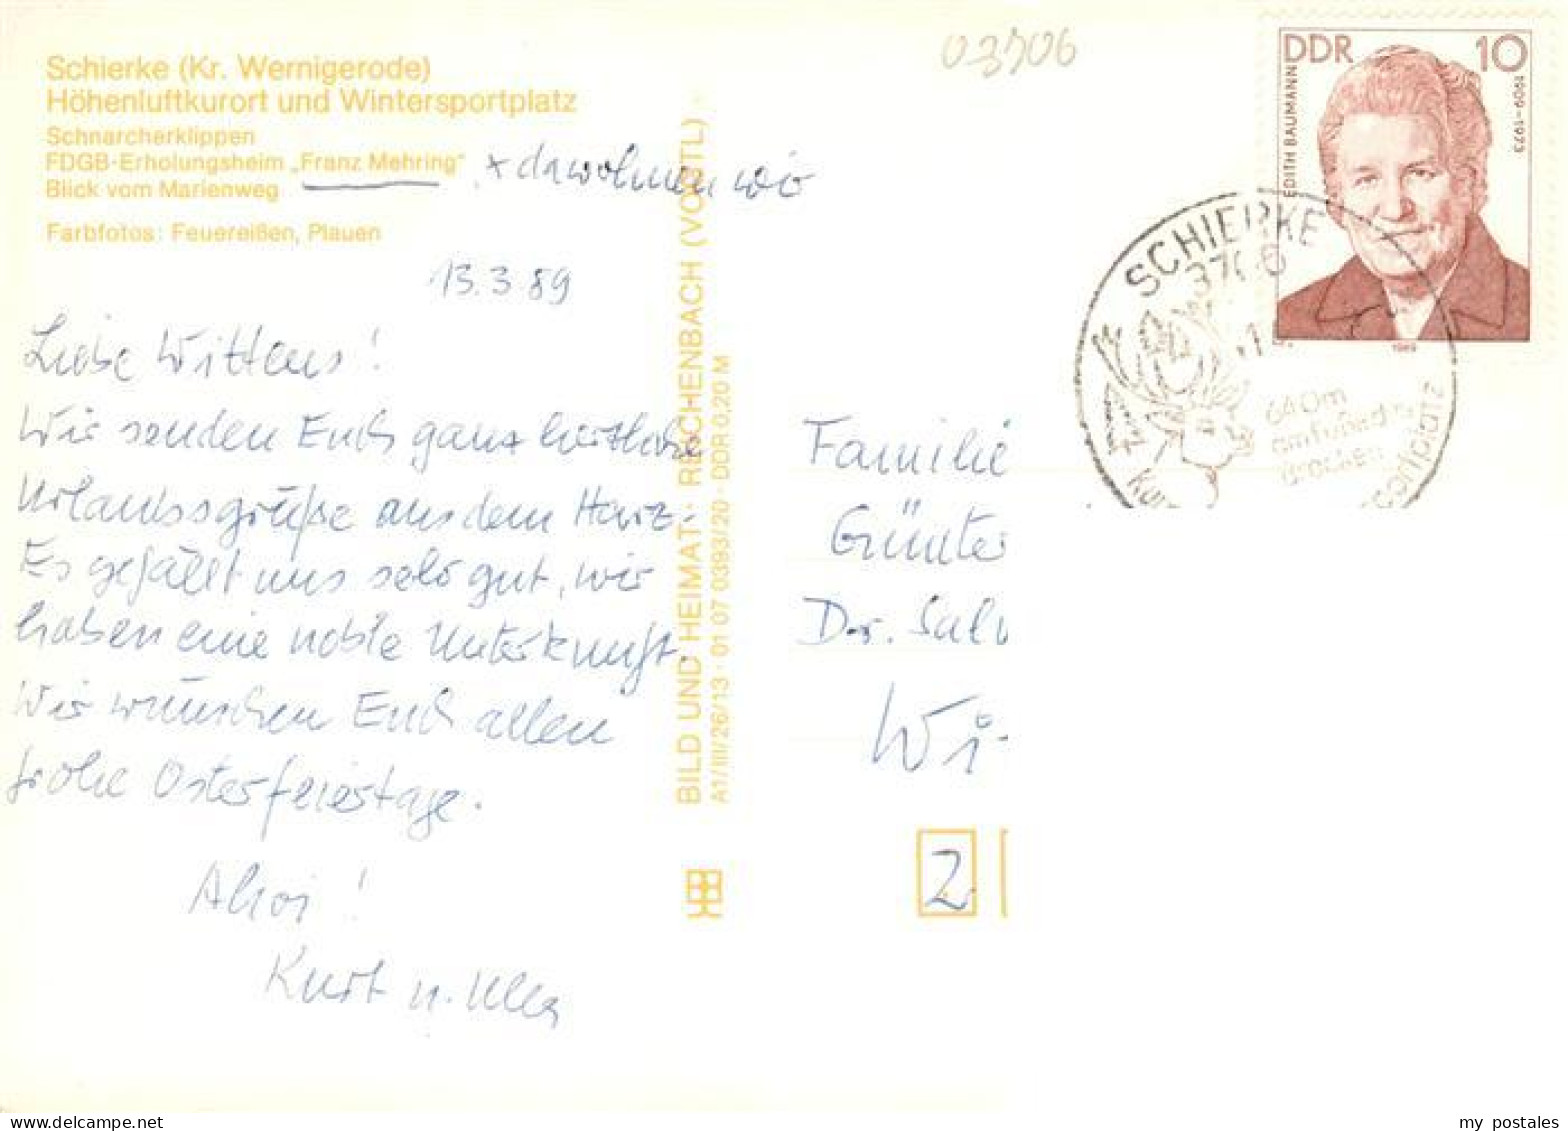 Schierke (Kr. Wernigerode)
Höhenluftkurort und Wintersportplatz
Schnarcherklippen
FDGB-Erholungsheim „Franz Mehring“ x da wohnen wir
Blick vom Marienweg
Farbfotos: Feuereißen, Plauen
13.3.89
Liebe Wittens!
Wir senden Euch ganz herzliche
Urlaubsgrüße aus dem Harz.
Es gefällt uns sehr gut, wir
haben eine noble Unterkunft.
Wir wünschen Euch allen
frohe Osterfeiertage.
Ahoi!
Kurt u. Ulla
BILD UND HEIMAT · REICHENBACH (VOGTL)
A1/III/26/13 · 01 07 0393/20 · DDR 0,20 M
03706
DDR 10
EDITH BAUMANN
1909-1973
1989
SCHIERKE
3706
640m
am Fuße des
Brocken
Kur
sportplatz
Familie
Günter
Dr. Salv
Wi
2
my postales